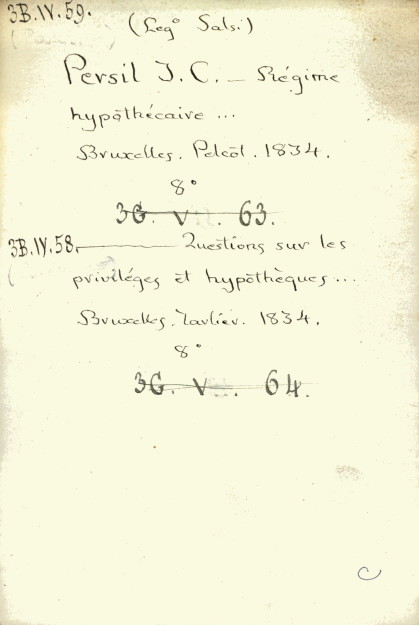 3B.IV.59.
(Leg° Sals.)
Persil J. C. — Régime
hypothécaire ...
Bruxelles. Pelcot. 1834.
8°
3G. V. 63.
3B.IV.58. ——— Questions sur les
privilèges et hypothèques ...
Bruxelles. Tarlier. 1834.
8°
3G. V. 64.